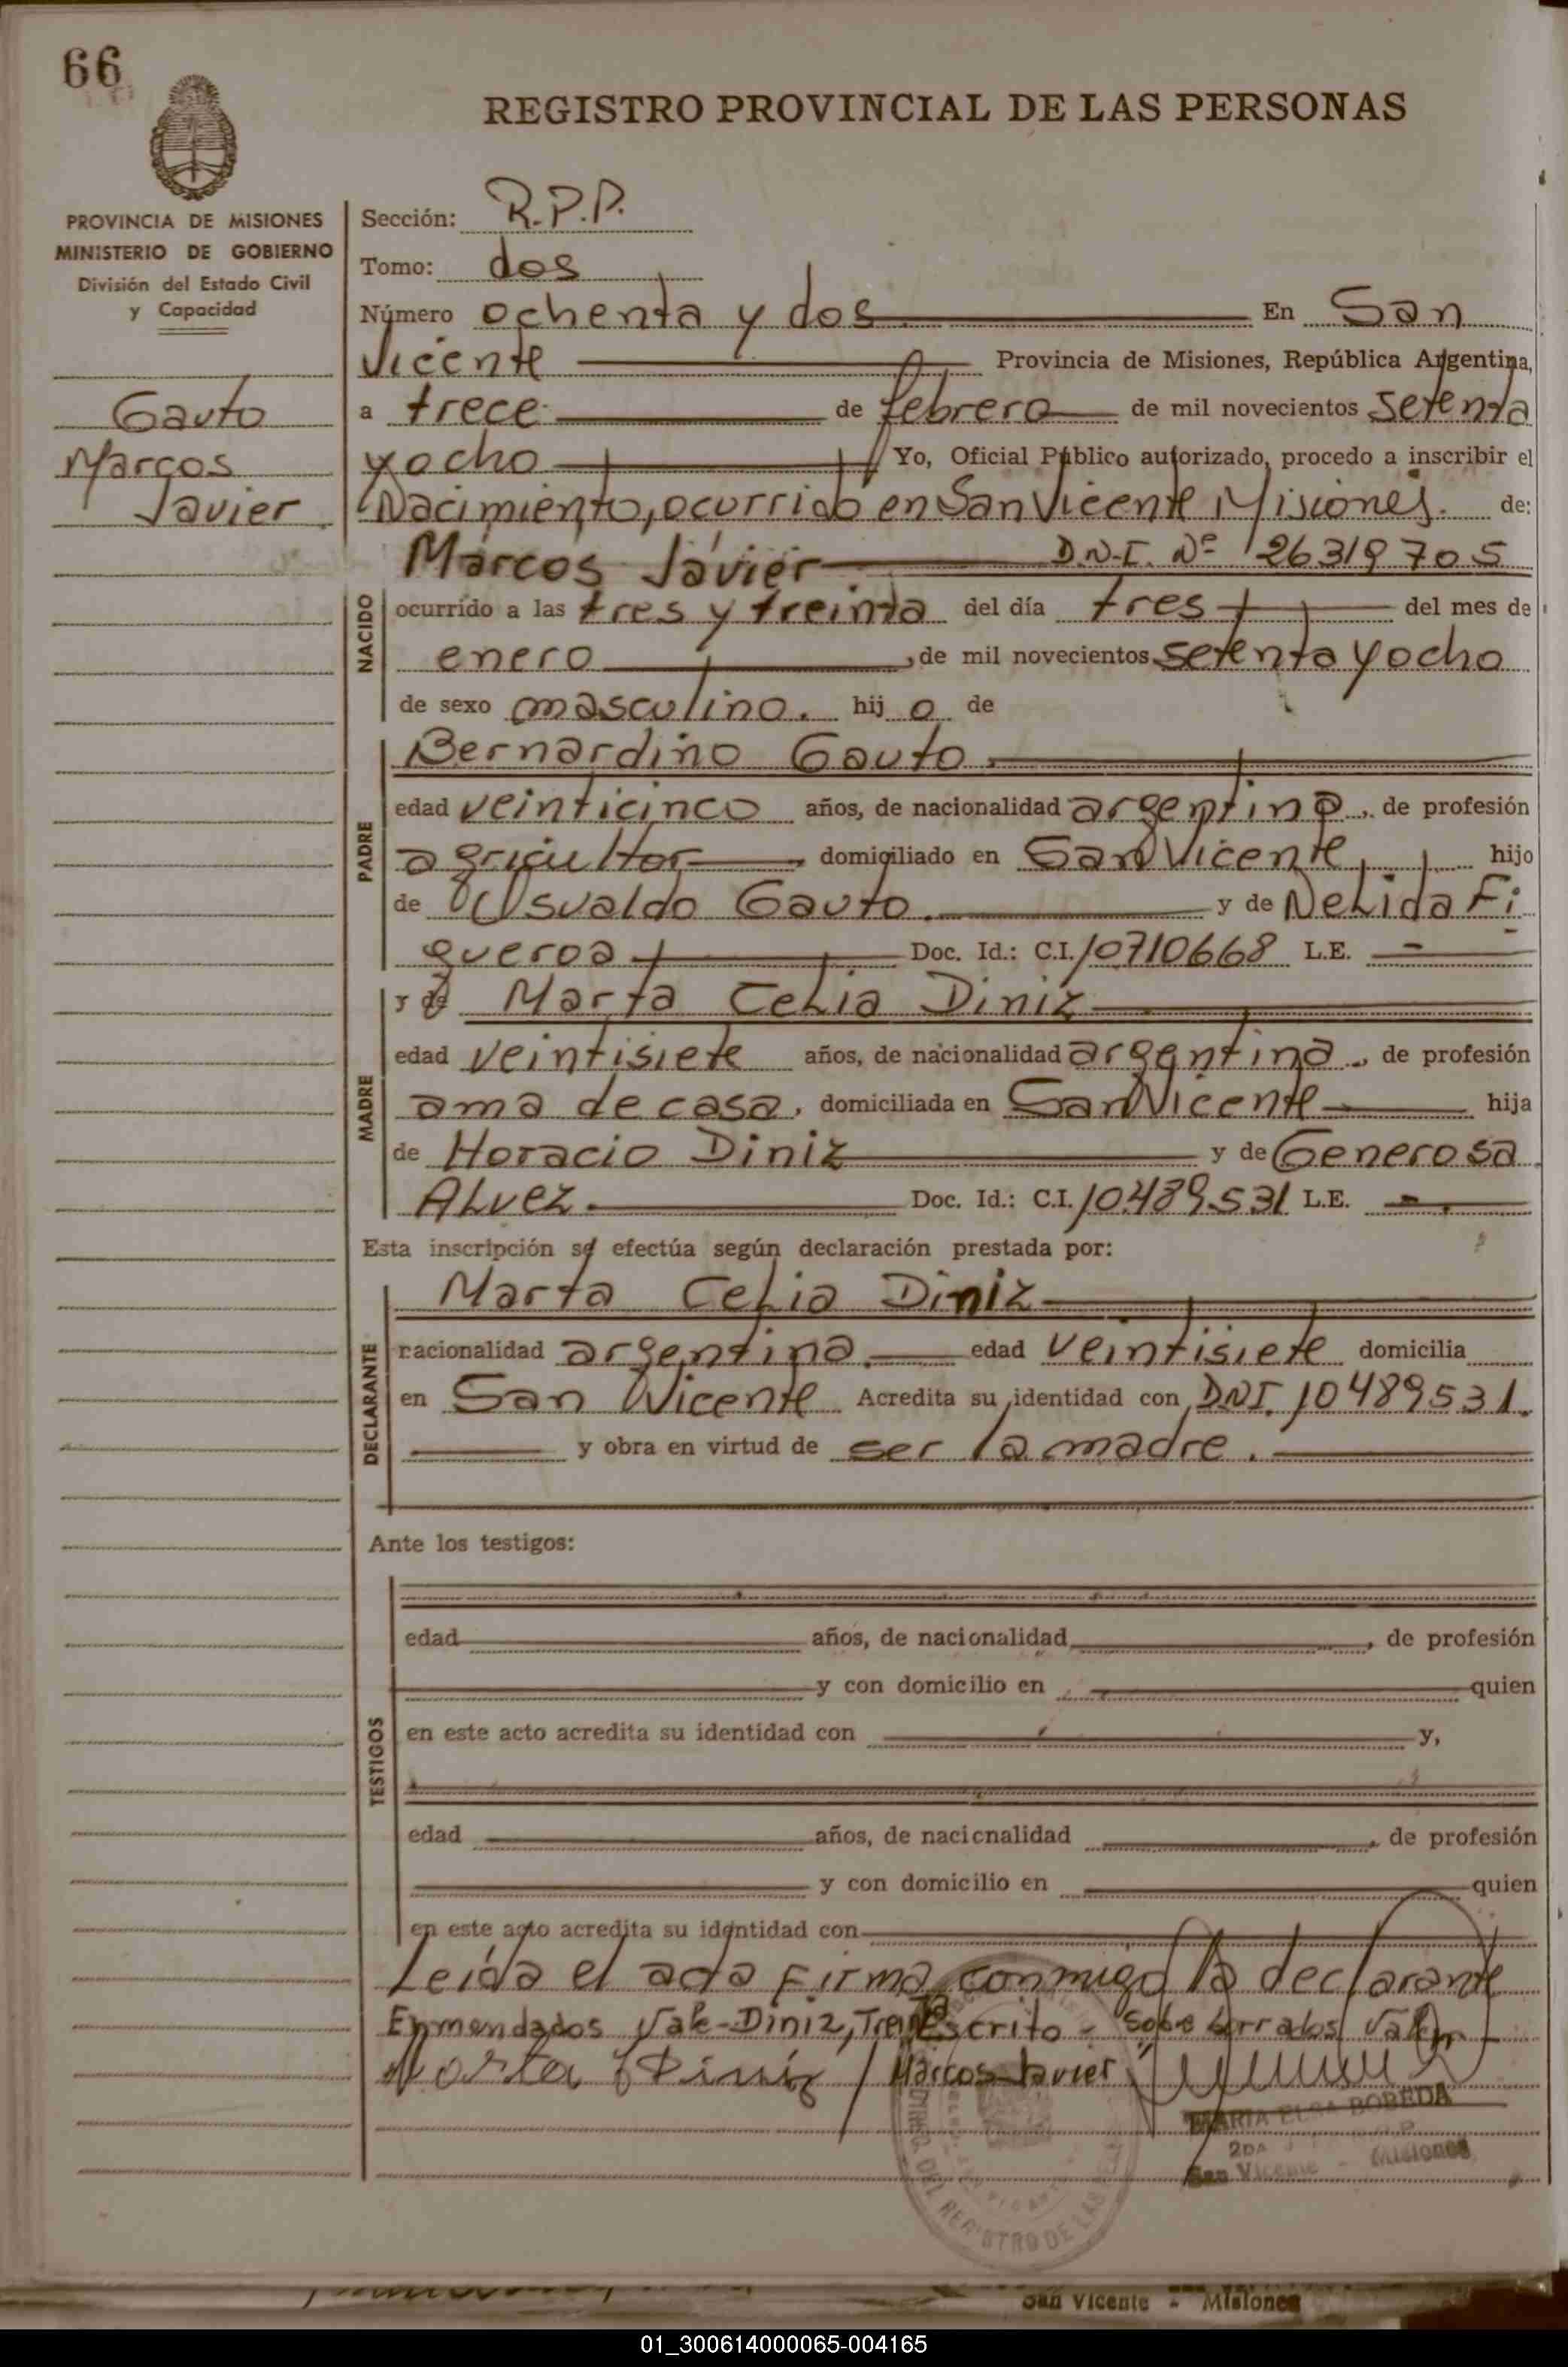 66
REGISTRO PROVINCIAL DE LAS PERSONAS
PROVINCIA DE MISIONES
MINISTERIO DE GOBIERNO
División del Estado Civil
y Capacidad
Gauto
Marcos
Javier
Sección: R.P.P.
Tomo: dos
Número ochenta y dos En San
Vicente Provincia de Misiones, República Argentina,
a trece de febrero de mil novecientos setenta
y ocho Yo, Oficial Público autorizado, procedo a inscribir el
Nacimiento, ocurrido en San Vicente Misiones. de:
Marcos Javier D.N.I. Nº 26319705
NACIDO
ocurrido a las tres y treinta del día tres del mes de
enero, de mil novecientos setenta y ocho
de sexo masculino. hij o de
PADRE
Bernardino Gauto.
edad veinticinco años, de nacionalidad argentina, de profesión
agricultor, domiciliado en San Vicente, hijo
de Osvaldo Gauto. y de Nelida Fi
gueroa Doc. Id.: C.I. 10710668 L.E. -
MADRE
y de Marta Celia Diniz
edad veintisiete años, de nacionalidad argentina, de profesión
ama de casa, domiciliada en San Vicente hija
de Horacio Diniz y de Generosa
Alvez. Doc. Id.: C.I. 10.489.531 L.E. -.
Esta inscripción se efectúa según declaración prestada por:
DECLARANTE
Marta Celia Diniz
nacionalidad argentina. edad veintisiete domicilia
en San Vicente Acredita su identidad con DNI. 10489531.
y obra en virtud de ser la madre.
Ante los testigos:
TESTIGOS
edad años, de nacionalidad, de profesión
y con domicilio en quien
en este acto acredita su identidad con y,
edad años, de nacicnalidad, de profesión
y con domicilio en quien
en este acto acredita su identidad con
Leida el acta firma conmigo la declarante
Enmendados Vale-Diniz, Escrito - Sobre
Marta C Diniz / Marcos Javier
MARIA ELSA BOBEDA
San Vicente - Misiones
REGISTRO DE LAS
San Vicente - Misiones
01_300614000065-004165